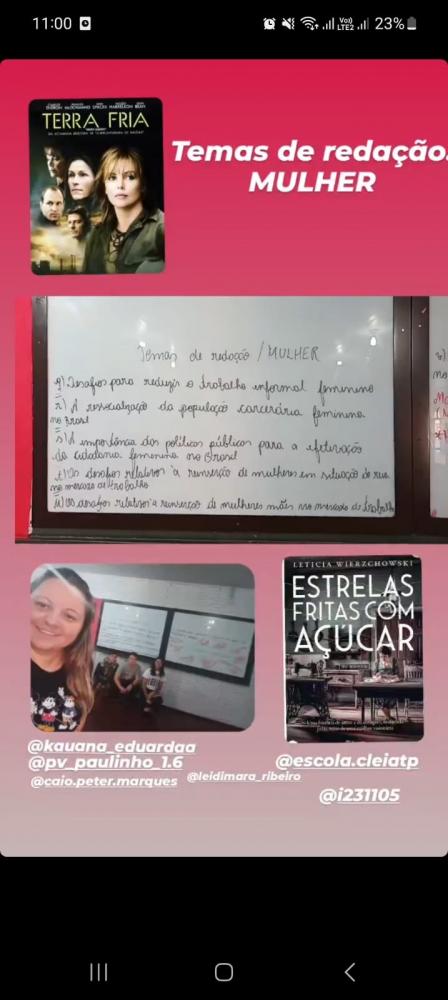 11:00
Vo))
LTE2
23%
TERRA FRIA
Temas de redação.
MULHER
Temas de redação / MULHER
q) Desafios para reduzir o trabalho informal feminino
r) A ressocialização da população carcerária feminina
no Brasil
s) A importância das políticas públicas para a efetivação
da cidadania feminina no Brasil
t) Os desafios relativos à reinserção de mulheres em situação de rua
no mercado de trabalho
u) Os desafios relativos à reinserção de mulheres mães no mercado de trabalho
LETICIA WIERZCHOWSKI
ESTRELAS
FRITAS COM
AÇÚCAR
@kauana_eduardaa
@pv_paulinho_1.6
@caio.peter.marques @leidimara_ribeiro
@escola.cleiatp
@i231105